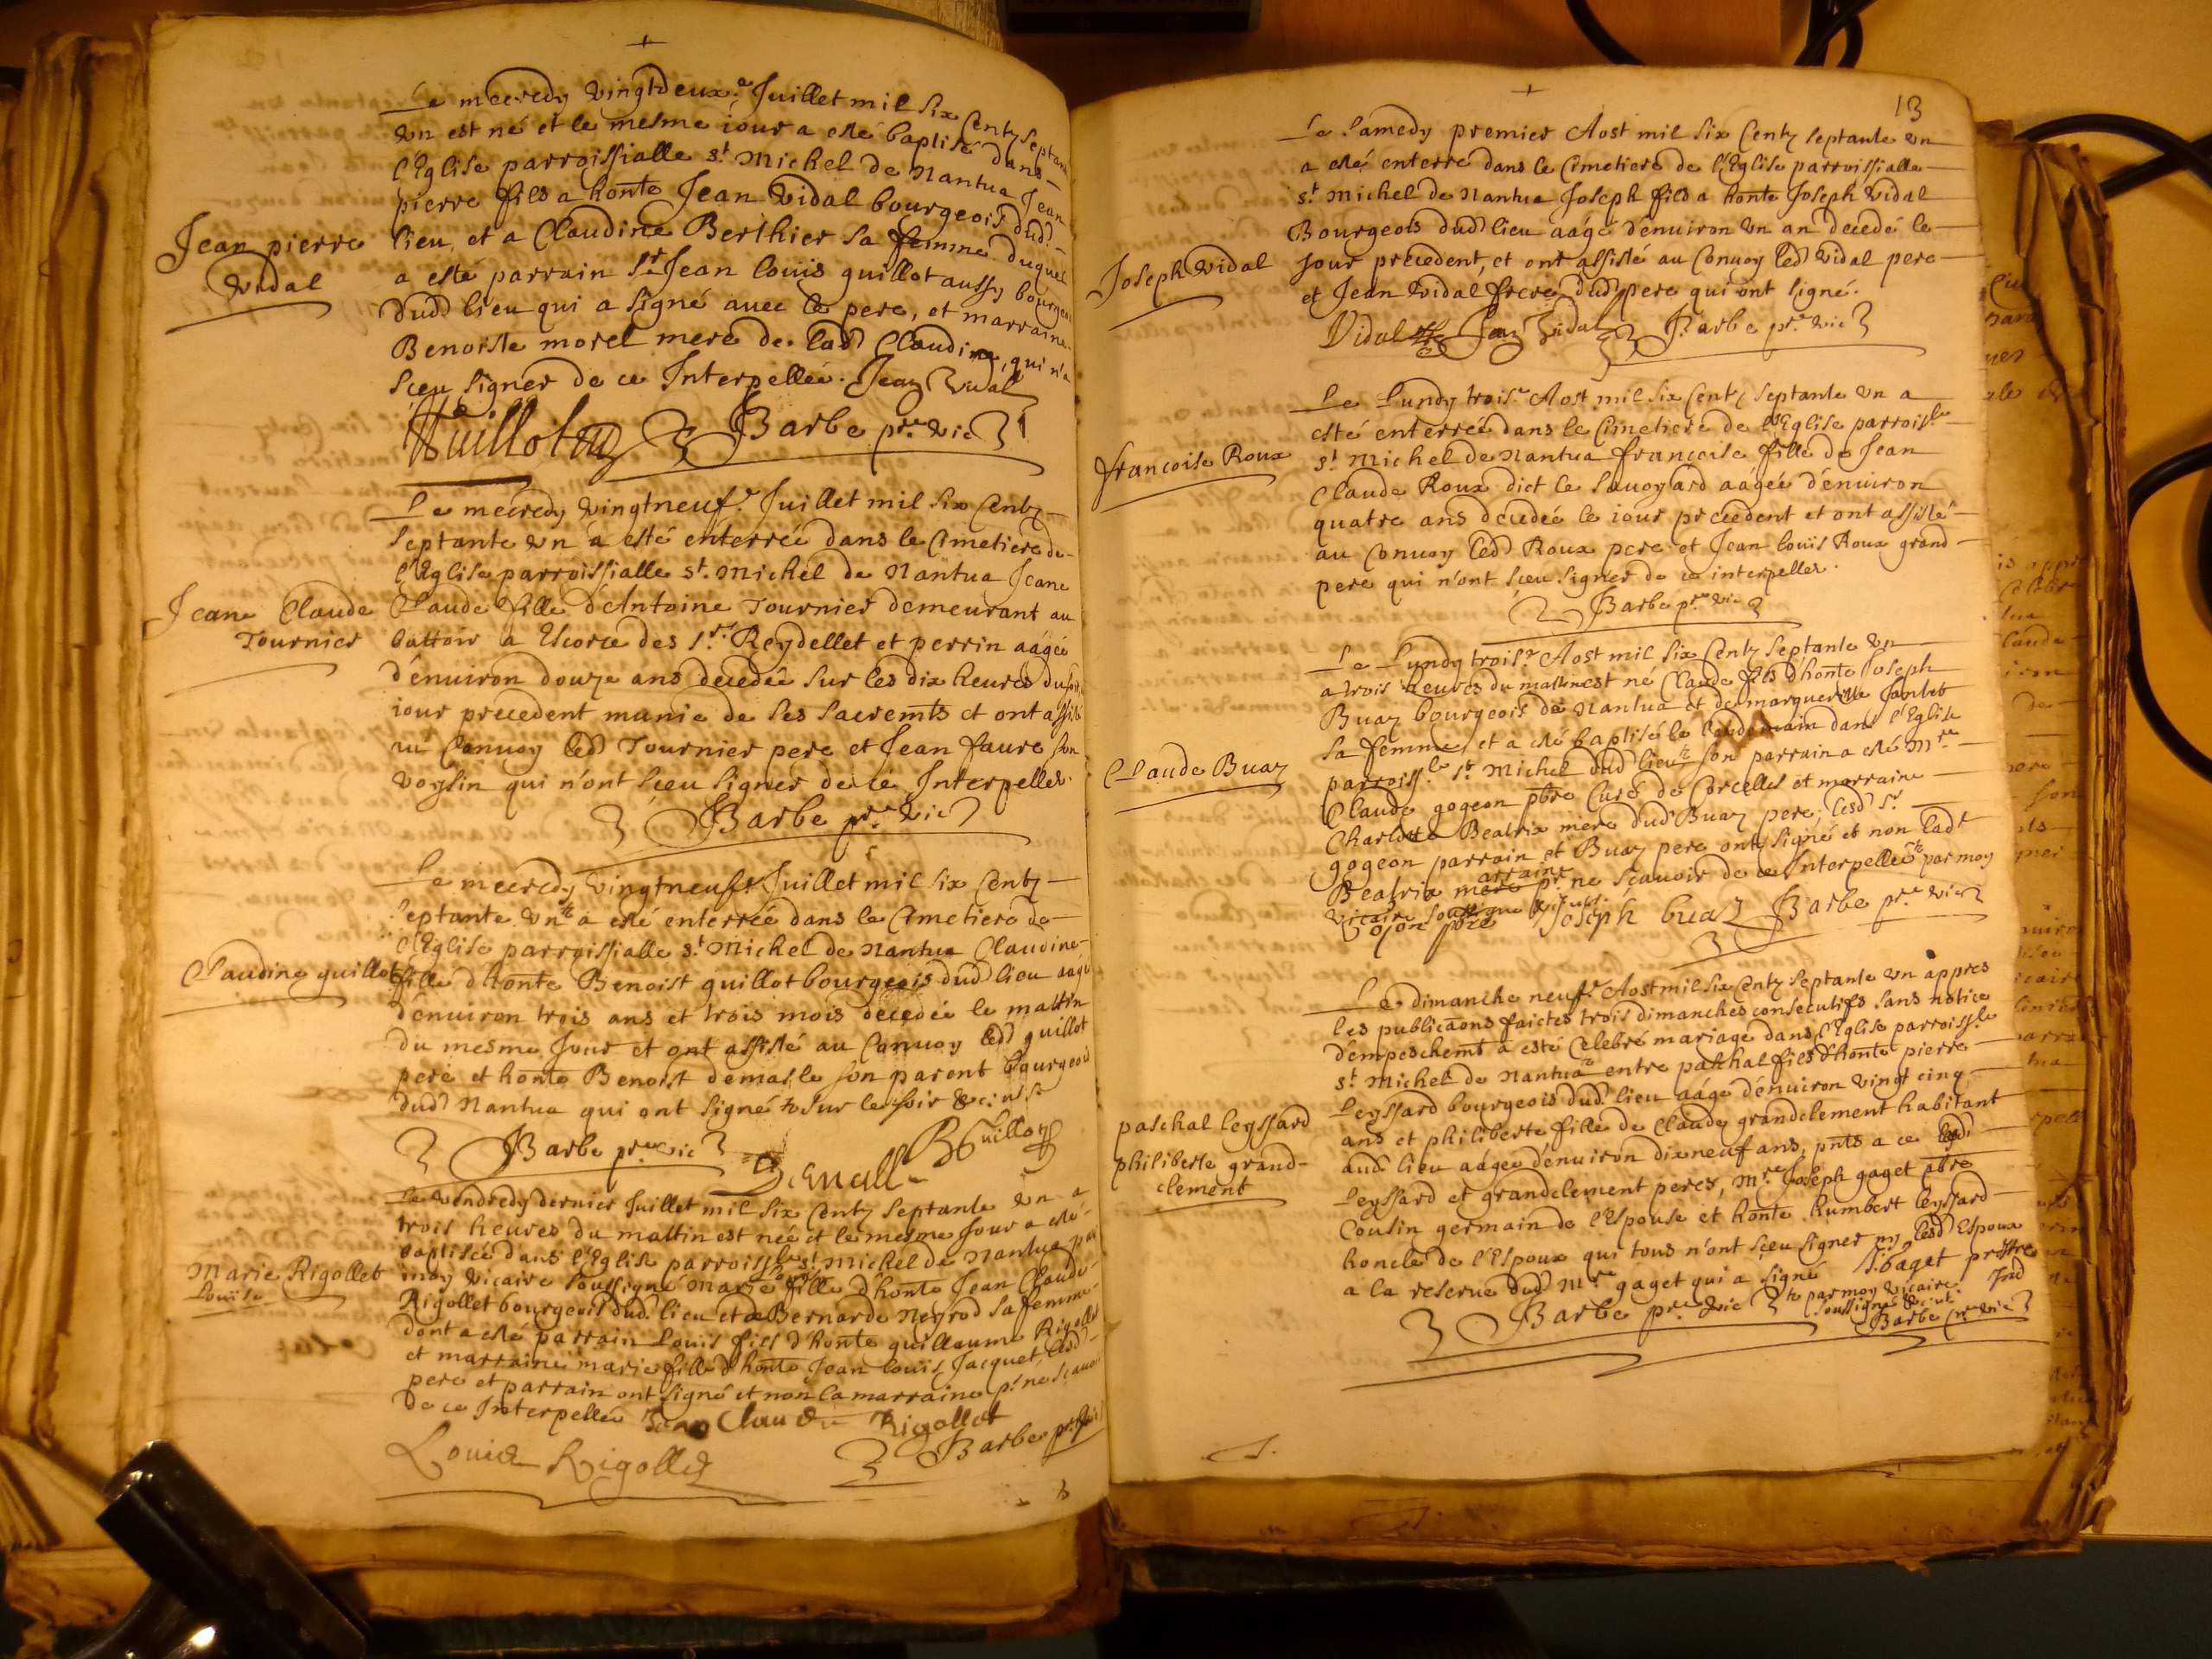 Le mecredy vingtdeux.e Juillet mil six Centz septante
vn est né et le mesme iour a esté baptisé dans
l'Eglise parroissialle st. Michel de Nantua Jean
pierre fils a honte Jean Vidal bourgeois dud.
lieu et a Claudine Berthier sa femme duquel
a esté parrain Sr. Jean louis guillot aussy bourgeois
dud lieu qui a signé auec le pere, et marraine
Benoiste morel mere de lad Claudine, qui n'a
sceu signer de ce Interpellée. Jean Vidal
Guillot Barbe pre. vic
Jean pierre
Vidal
Le mecredy vingtneuf.e Juillet mil six Centz
septante vn a esté enterrée dans le Cimetiere de
l'Eglise parroissialle st. Michel de Nantua Jeane
Claude fille d'Antoine Tournier demeurant au
battoir a Escorce des srs. Reydellet et perrin aagée
d'enuiron douze ans decedée sur les dix heures du soir
iour precedent munie de ses sacremts et ont assisté
au Conuoy led Tournier pere et Jean faure son
voysin qui n'ont sceu signer de ce Interpelles.
Barbe pre. vic
Jeane Claude
Tournier
Le mecredy vingtneufe Juillet mil six Centz
septante vn a esté enterrée dans le Cimetiere de
l'Eglise parroissialle st. Michel de Nantua Claudine
fille d'honte Benoist guillot bourgeois dud lieu aagée
d'enuiron trois ans et trois mois decedée le mattin
du mesme Jour et ont assisté au Conuoy led guillot
pere et honte Benoist demasle son parent bourgeois
dud Nantua qui ont signé sur le soir
Barbe pre. vic BGuillot
Claudine guillot
Le Vendredy dernier Juillet mil six Centz septante vn a
trois heures du mattin est née et le mesme Jour a esté
baptisée dans l'Eglise parroissle st. Michel de Nantua par
moy vicaire soussigné Marie louise fille d'honte Jean Claude
Rigollet bourgeois dud. lieu et a Bernarde Neyrod sa femme
dont a esté parrain Louis fils d'honte guillaume Rigollet
et marraine marie fille d'honte Jean louis Jacquet, lesd
pere et parrain ont signé et non la marraine pr. ne scauoir
de ce Interpellée Jean Claude Rigollet
Louis Rigollet Barbe pre. vic
Marie Rigollet
Louise
13
Le Samedy premier Aost mil six Centz septante vn
a esté enterré dans le Cimetiere de l'Eglise parroissialle
st. Michel de Nantua Joseph fils a honte Joseph Vidal
Bourgeois dud lieu aagé d'enuiron vn an decedé le
jour precedent, et ont assisté au Conuoy led Vidal pere
et Jean Vidal frere dud pere qui ont signé.
Vidal Jean Vidal Barbe pre. vic
Joseph Vidal
Le Lundy trois.e Aost mil six Centz septante vn a
esté enterrée dans le Cimetiere de l'Eglise parroissle
st. Michel de Nantua francoise fille de Jean
Claude Roux dict le Sauoyard aagée d'enuiron
quatre ans decedée le iour precedent et ont assisté
au Conuoy led Roux pere et Jean louis Roux grand
pere qui n'ont sceu signer de ce interpelles.
Barbe pre. vic
francoise Roux
Le Lundy trois.e Aost mil six Centz septante vn
a trois heures du mattin est né Claude fils d'honte Joseph
Buaz bourgeois de Nantua et de margueritte Jantet
sa femme, et a esté baptisé le lendemain dans l'Eglise
parroiss.le st. Michel dud lieu son parrain a esté Mre
Claude gogeon pbre Curé de Corcelles et marraine
Charlotte Beatrix mere dud Buaz pere, lesd sr
gogeon parrain et Buaz pere ont signé et non lad.
Beatrix marraine pr. ne scauoir de ce Interpellée par moy
vicaire soussigné
Gojon pbre Joseph buaz Barbe pre. vic
Claude Buaz
Le dimanche neuf.e Aost mil six Centz septante vn appres
les publicaons faictes trois dimanches consecutifs sans notice
d'empeschemt a esté Celebré mariage dans l'Eglise parroiss.le
st. Michel de Nantua entre paschal fils d'honte pierre
Leyssard bourgeois dud. lieu aagé d'enuiron vingt cinq
ans et philiberte fille de Claude grandclement habitant
aud lieu aagée d'enuiron dixneuf ans, pnts a ce lesd
Leyssard et grandclement peres, Mre. Joseph gaget pbre
Cousin germain de l'Espouse et honte humbert leyssard
honcle de l'Espoux qui tous n'ont sceu signer ny lesd Espoux
a la reserue dud Mre gaget qui a signé J. Gaget prestre
Barbe pre vic par moy vicaire
soussigné
Barbe pre vic
paschal leyssard
philiberte grand-
clement